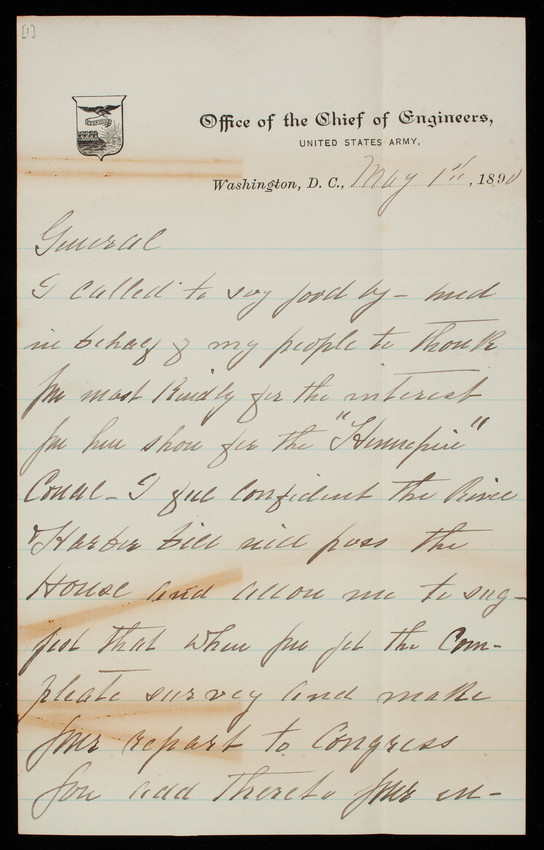 [1]
Office of the Chief of Engineers,
UNITED STATES ARMY,
Washington, D. C., May 1st, 1890
General
I called to say good by - and
in behalf of my people to thank
you most kindly for the interest
you have shown for the "Hennepin"
Canal - I feel confident the River
& Harbor bill will pass the
House and allow me to sug-
gest that when you get the Com-
pleate survey and make
your report to Congress
You add thereto your en-